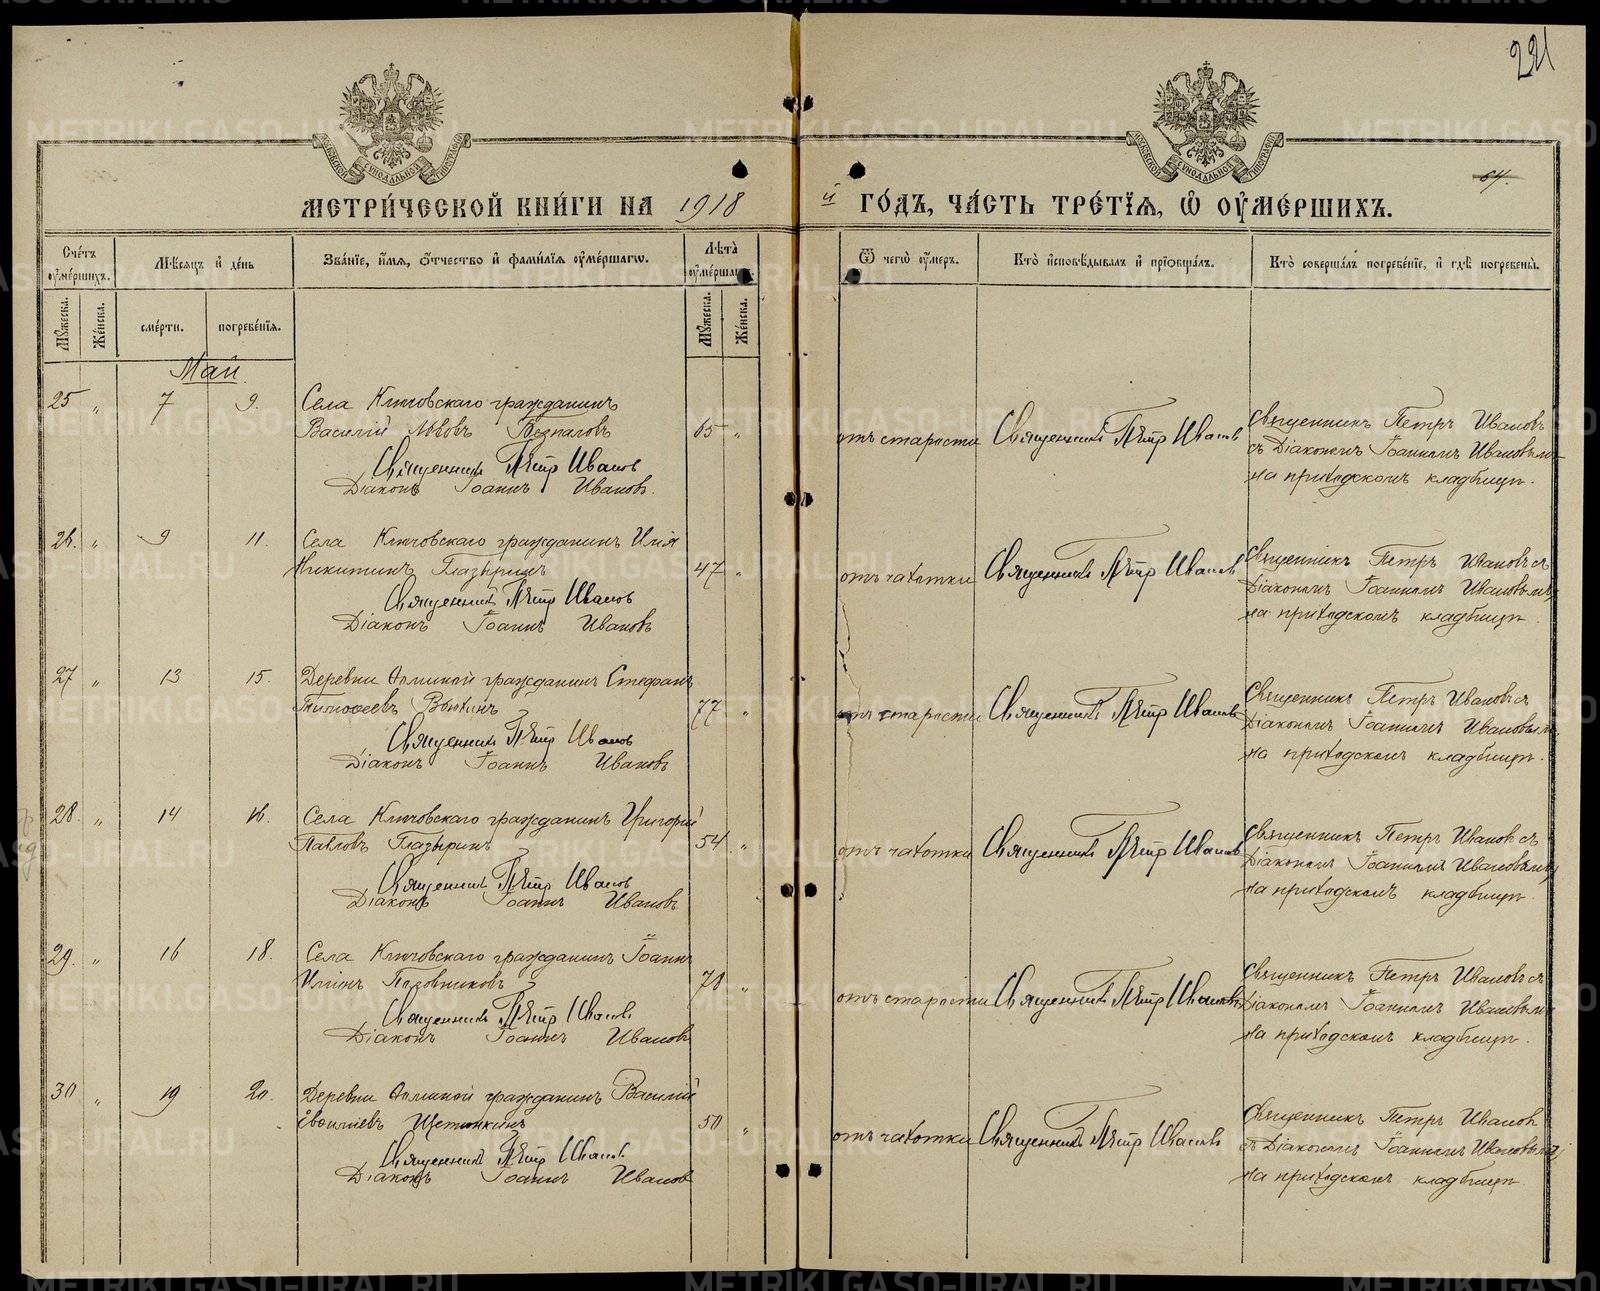 221
64.
МЕТРИ́ЧЕСКОЙ КНИ́ГИ НА 1918 й ГО́ДЪ, ЧА́СТЬ ТРЕ́ТІѦ, Ѡ ОУ҆МЕ́РШИХЪ.
Сче́тъ оу҆ме́ршихъ.
Мѣ́сяцъ и҆ де́нь
Зва́нїе, и҆́мѧ, ѻ҆́тчество и҆ фами́лїѧ оу҆ме́ршагѡ.
Лѣ́та оу҆ме́ршагѡ.
Ѿ чегѡ̀ оу҆́меръ.
Кто̀ и҆сповѣ́дывалъ и҆ прїѡбща́лъ.
Кто̀ соверша́лъ погребе́нїе, и҆ гдѣ̀ погребены̀.
Мꙋ́жеска.
Же́нска.
сме́рти.
погребе́нїѧ.
Мꙋ́жеска.
Же́нска.
Май.
25 " 7 9. Села Ключовскаго гражданинъ
Василій Львовъ Безпаловъ 65 "
Священникъ Петр Иванов
Діаконъ Іоаннъ Ивановъ.
отъ старости Священникъ Петр Иванов
Священникъ Петръ Ивановъ
съ Діакономъ Іоанномъ Ивановымъ
на приходскомъ кладбищѣ.
26. " 9 11. Села Ключовскаго гражданинъ Илія
Никитинъ Глазыринъ 47 "
Священникъ Петр Иванов
Діаконъ Іоаннъ Ивановъ
отъ чахотки Священникъ Петр Иванов
Священникъ Петръ Ивановъ съ
Діакономъ Іоанномъ Ивановымъ
на приходскомъ кладбищѣ.
27 " 13 15. Деревни гражданинъ Стефанъ
Тимоѳеевъ Вьюхинъ 77 "
Священникъ Петр Иванов
Діаконъ Іоаннъ Ивановъ
отъ старости Священникъ Петр Иванов
Священникъ Петръ Ивановъ съ
Діакономъ Іоанномъ Ивановымъ
на приходскомъ кладбищѣ.
28. " 14 16. Села Ключовскаго гражданинъ Григорій
Павловъ Глазыринъ 54 "
Священникъ Петр Иванов
Діаконъ Іоаннъ Ивановъ
отъ чахотки Священникъ Петр Иванов
Священникъ Петръ Ивановъ съ
Діакономъ Іоанномъ Ивановымъ
на приходскомъ кладбищѣ.
29. " 16 18. Села Ключовскаго гражданинъ Іоаннъ
Ильинъ Половниковъ 78 "
Священникъ Петр Иванов
Діаконъ Іоаннъ Ивановъ
отъ старости Священникъ Петр Иванов
Священникъ Петръ Ивановъ съ
Діакономъ Іоанномъ Ивановымъ
на приходскомъ кладбищѣ.
30 " 19 20. Деревни гражданинъ Василій
Щетинкинъ 50 "
Священникъ Петр Иванов
Діаконъ Іоаннъ Ивановъ
отъ чахотки Священникъ Петр Иванов
Священникъ Петръ Ивановъ
съ Діакономъ Іоанномъ Ивановымъ
на приходскомъ кладбищѣ
METRIKI.GASO-URAL.RU